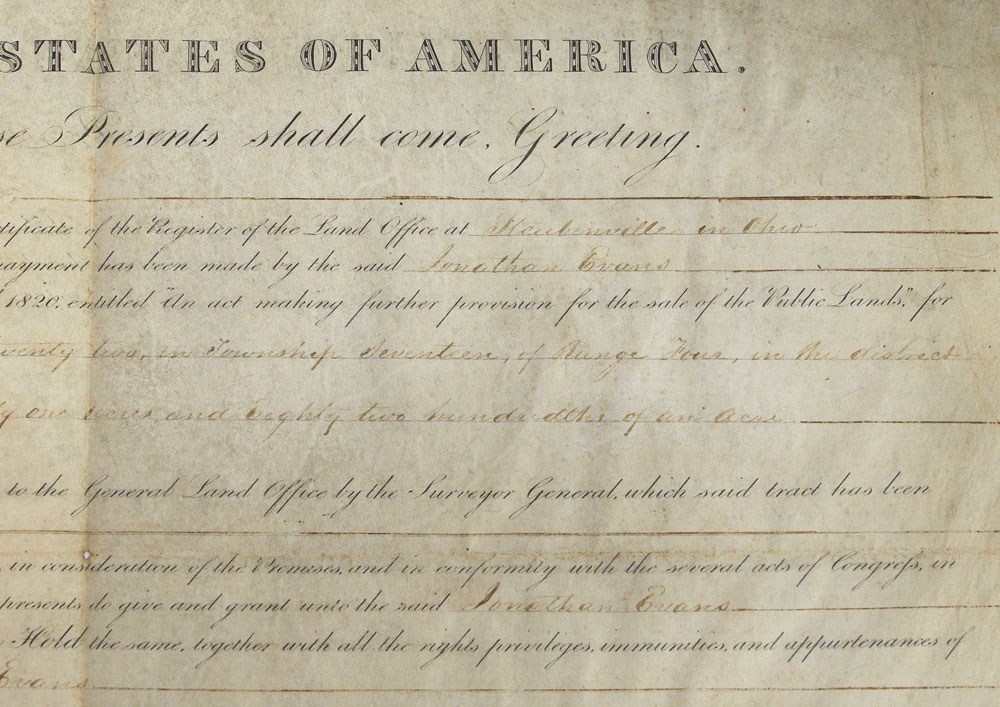 STATES OF AMERICA.
se Presents shall come, Greeting.
tificate of the Register of the Land Office at Steubenville in Ohio
payment has been made by the said Jonathan Evans
1820, entitled "An act making further provision for the sale of the Public Lands," for
wenty two, in Township Seventeen, of Range Four, in the district
ty one acres, and Eighty two hundredths of an acre
to the General Land Office by the Surveyor General, which said tract has been
, in consideration of the Premises, and in conformity with the several acts of Congreſs, in
presents do give and grant unto the said Jonathan Evans
Hold the same, together with all the rights, privileges, immunities, and appurtenances of
Evans